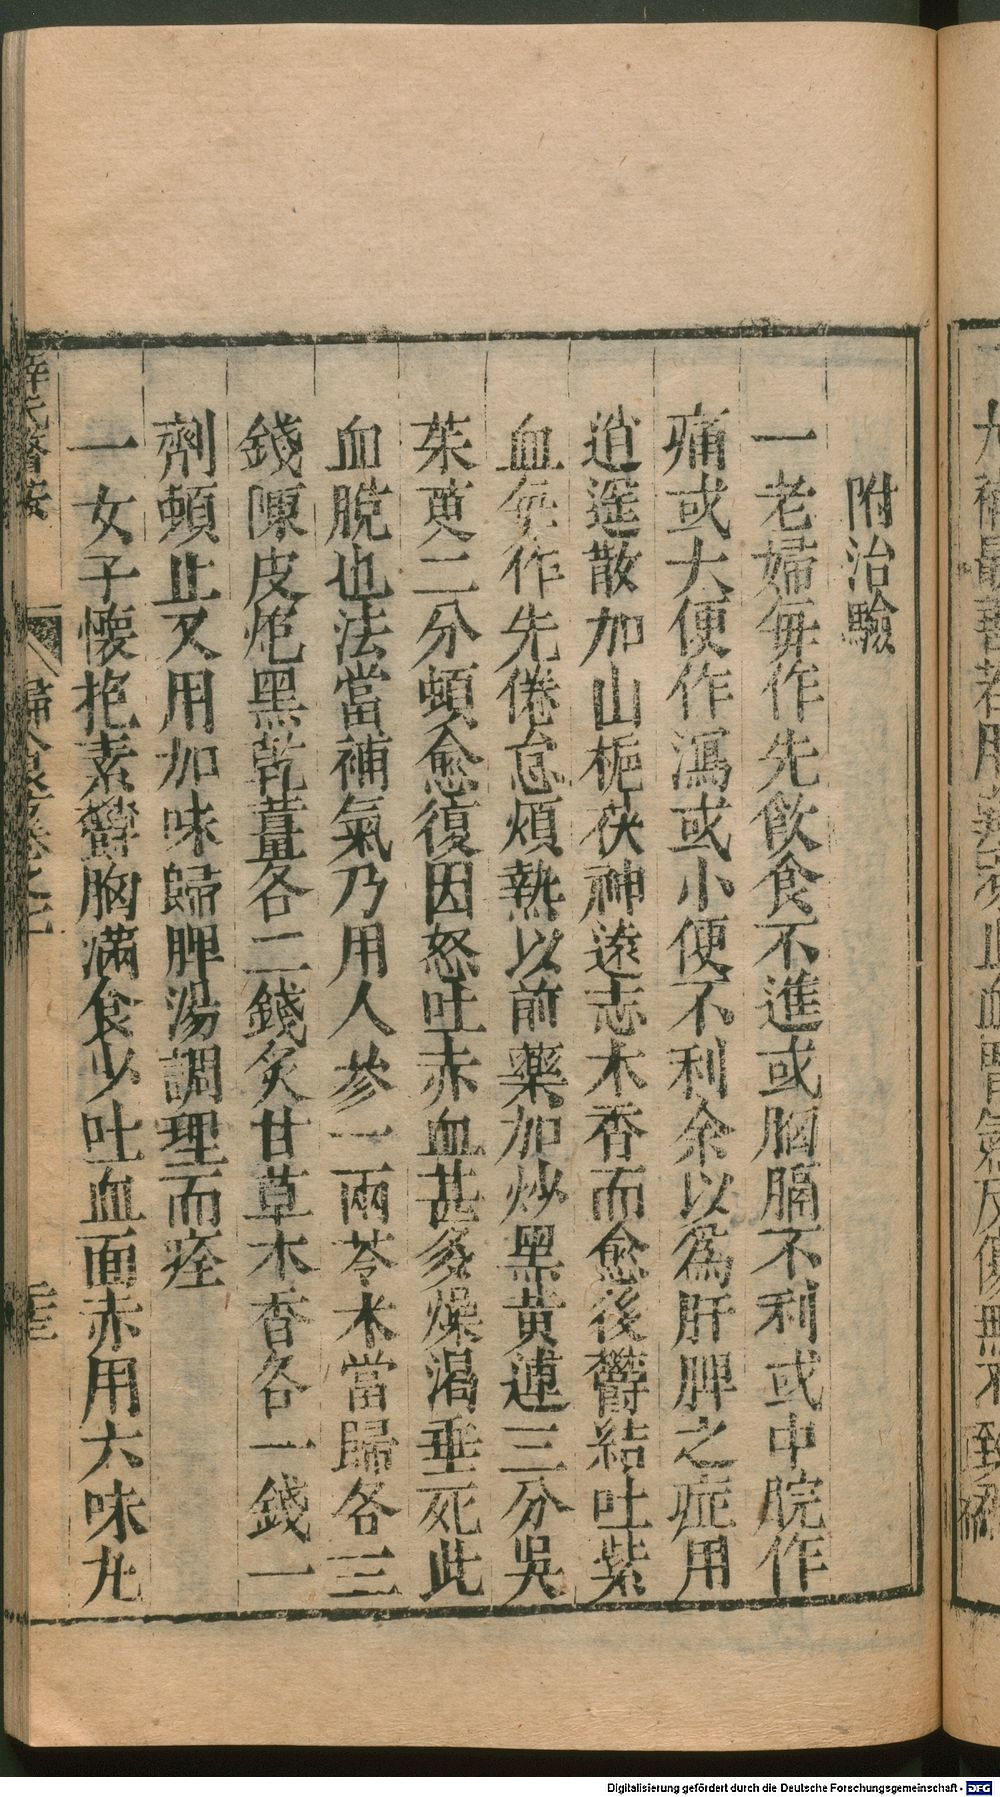 附治驗
一老婦每作先飲食不進或胸膈不利或中脘作
痛或大便作瀉或小便不利余以爲肝脾之症用
逍遥散加山梔茯神遠志木香而愈後欝結吐紫
血每作先倦怠煩熱以前藥加炒黑黄連三分吳
茱萸二分頓愈復因怒吐赤血甚多燥渴垂死此
血脫也法當補氣乃用人參一兩苓术當歸各三
錢陳皮炮黑乾薑各二錢炙甘草木香各一錢一
劑頓止又用加味歸脾湯調理而痊
一女子懷抱素欝胸滿食少吐血面赤用六味丸
Digitalisierung gefördert durch die Deutsche Forschungsgemeinschaft - DFG